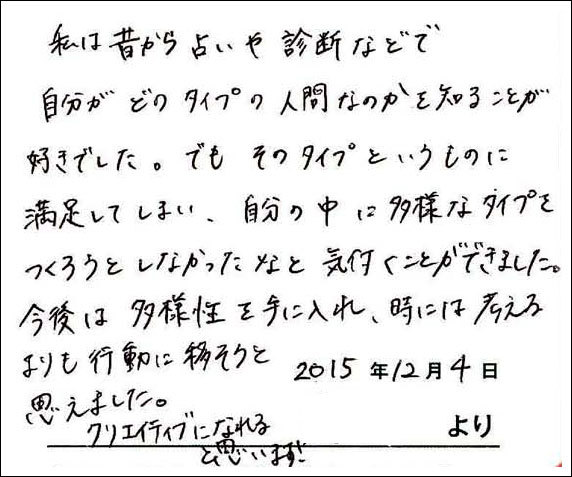 私は昔から占いや診断などで
自分がどのタイプの人間なのかを知ることが
好きでした。でもそのタイプというものに
満足してしまい、自分の中に多様なタイプを
つくろうとしなかったなと気付くことができました。
今後は多様性を手に入れ、時には考える
よりも行動に移そうと
思えました。
2015年12月4日
クリエイティブになれる
と思います!
より